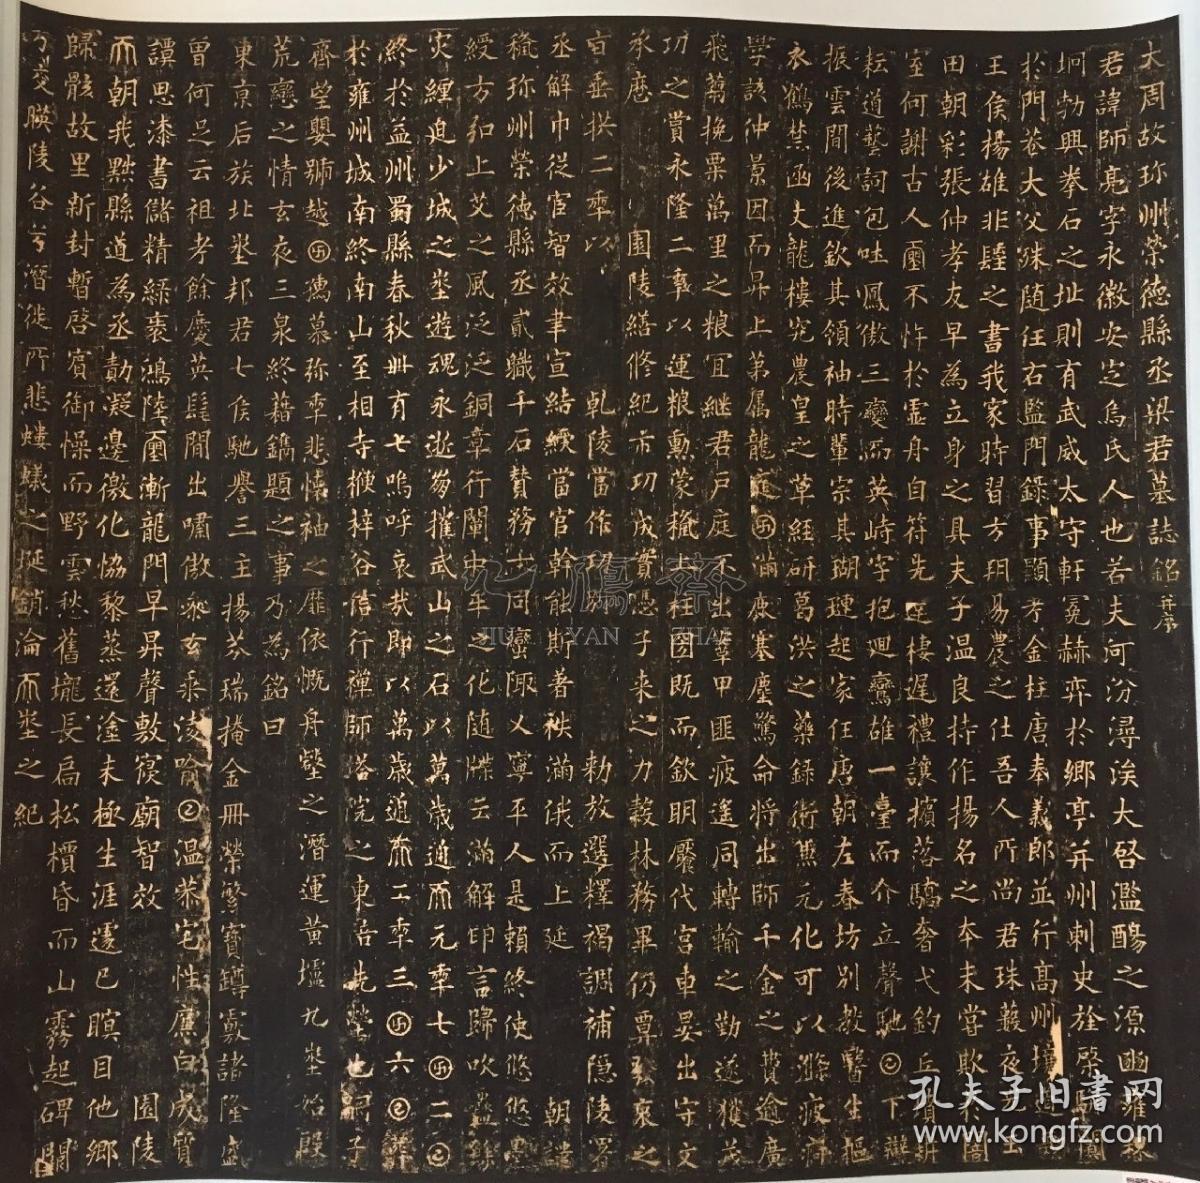 大周故珎州榮德縣丞梁君墓誌銘并序
君諱師亮字永徽安定烏氏人也若夫河汾潯涘大啓濫觴之源豳雍
垌勃興拳石之址則有武威太守軒冕赫弈於鄉亭并州刺史旌棨
於門巷大父殊隨任右監門錄事顯考金柱唐奉義郎並行高州壤
王侯楊雄非聖之書我家時習方玥易農之仕吾人所尚君珠蘂夜
田朝彩張仲孝友早為立身之具夫子溫良持作揚名之本未嘗欺於闇
室何謝古人圭不忤於虛舟自符先達棲遲禮讓擯落驕奢弋釣丘墳耕
耘道藝詞苞吐鳳傲三變而英峙字抱迴鸞雄一臺而介立聲馳下辯
振雲間後進欽其領袖時輩宗其瑚璉起家任唐朝左春坊別教醫生摳
衣鶴禁函丈龍樓究農皇之草經研葛洪之藥錄術無元化可以滌疲痾
學該仲景因而昇上第屬龍庭滿鹿塞塵驚命將出師千金之費逾廣
飛蒭挽粟萬里之粮宜繼君戶庭不出羣甲匪疲遙同轉輸之勤遂獲茂
功之賞永隆二年以運粮勳蒙授上柱國既而欽明厭代宮車晏出守文
承歷 園陵繕修紀市功成實憑子來之力穀林務畢仍覃發衷之
旨垂拱二年以 乾陵當作功別 勅放選釋褐調補隱陵署
丞解巾從宦智效聿宣結綬當官幹能斯著秩滿俄而上延 朝譴
授珎州榮德縣丞貳職千石贊務六同蠻陬乂寧平人是賴終使悠悠墨
綬方扣上艾之風泛泛銅章行闡中牟之化隨牒云滿解印言歸吹蠱餘
灾纏迫少城之坐遊魂永逝芴摧武山之石以萬歲通天元年七月二日
終於益州蜀縣春秋卌有七嗚呼哀哉即以萬歲通天二年三月六日葬
於雍州城南終南山至相寺楩梓谷信行禪師塔院之東陪先塋也嗣子
齊望嬰號越月孺慕弥年悲懷袖之靡依慨舟壑之潛運黃壚九坐始殷
荒戀之情玄夜三泉終藉鐫題之事乃為銘曰
東京后族北地邦君七侯馳譽三主揚芬瑞掩金冊榮繁寶罇㪅諸隆盛
曾何足云祖考餘慶英髦間出嘯傲黎玄乘淩喻日溫恭宅性廉白成質
譚思漆書儲精緑袠鴻陸圭漸龍門早昇聲敷寢廟智效 園陵
而朝我黔縣道為丞勣凝邊徼化協黎蒸還塗未極生涯遽已瞑目他鄉
歸骸故里新封暫啓賓御慘而野雲愁舊壠長扃松檟昏而山霧起碑闕
乃交暎陵谷兮潛徙所悲螻蟻之埏銷淪而坐之紀